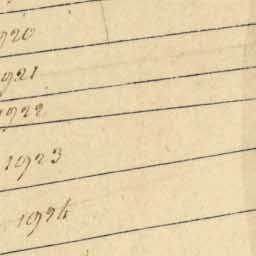 1920
1921
1922
1923
1924